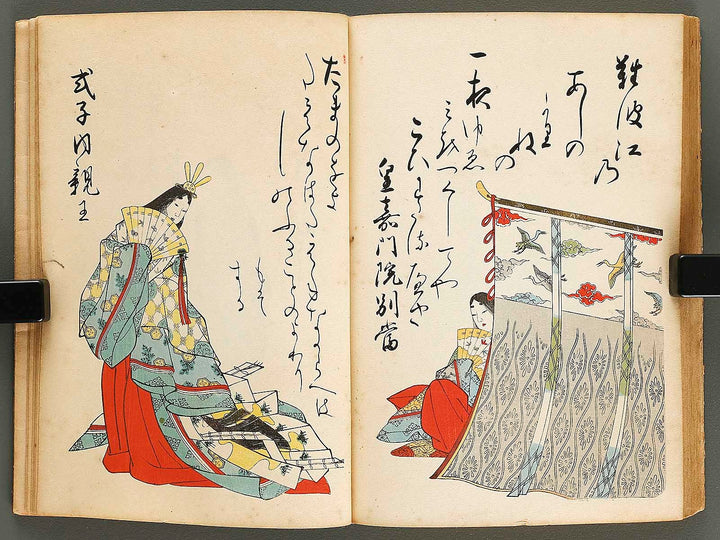 難波江乃
あしの
かりねの
一夜ゆゑ
みをつくしてや
こひわたるへき
皇嘉門院別當
たまの緒よ
たえなはたえねなからへは
しのふることのよわり
もそ
する
式子内親王